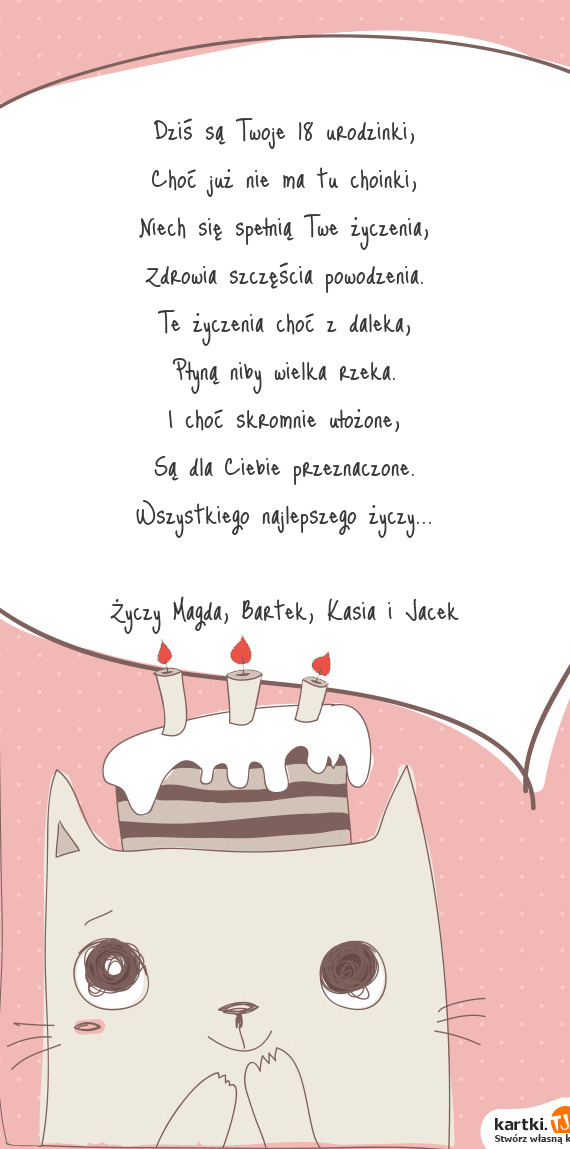 Dziś są Twoje 18 urodzinki,
Choć już nie ma tu choinki,
Niech się spełnią Twe życzenia,
Zdrowia szczęścia powodzenia.
Te życzenia choć z daleka,
Płyną niby wielka rzeka.
I choć skromnie ułożone,
Są dla Ciebie przeznaczone.
Wszystkiego najlepszego życzy...
Życzy Magda, Bartek, Kasia i Jacek
kartki.TJ
Stwórz własną k